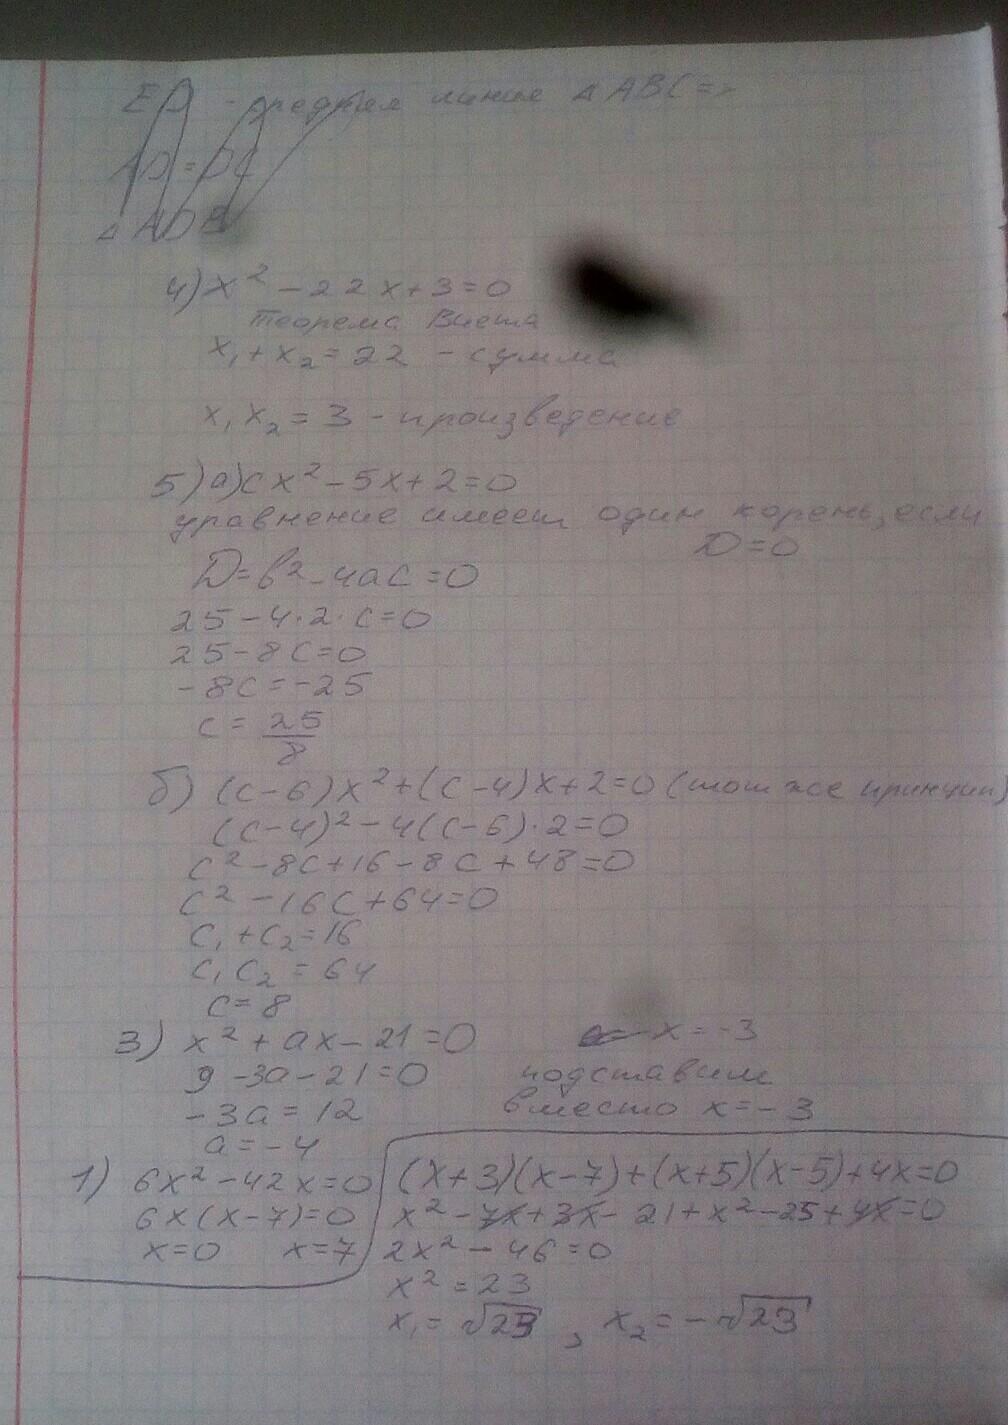 ED - средняя линия △ ABC =>
AD = DC
△ ADE
4) x² - 22x + 3 = 0
Теорема Виета
x₁ + x₂ = 22 - сумма
x₁ x₂ = 3 - произведение
5) а) cx² - 5x + 2 = 0
уравнение имеет один корень, если
D = 0
D = b² - 4ac = 0
25 - 4·2·c = 0
25 - 8c = 0
-8c = -25
c = 25/8
б) (c-6)x² + (c-4)x + 2 = 0 (тот же принцип)
(c-4)² - 4(c-6)·2 = 0
c² - 8c + 16 - 8c + 48 = 0
c² - 16c + 64 = 0
c₁ + c₂ = 16
c₁ c₂ = 64
c = 8
3) x² + ax - 21 = 0 x = -3
9 - 3a - 21 = 0 подставим
-3a = 12 вместо x = -3
a = -4
1) 6x² - 42x = 0
6x(x-7) = 0
x = 0 x = 7
(x+3)(x-7) + (x+5)(x-5) + 4x = 0
x² - 7x + 3x - 21 + x² - 25 + 4x = 0
2x² - 46 = 0
x² = 23
x₁ = √23 , x₂ = -√23